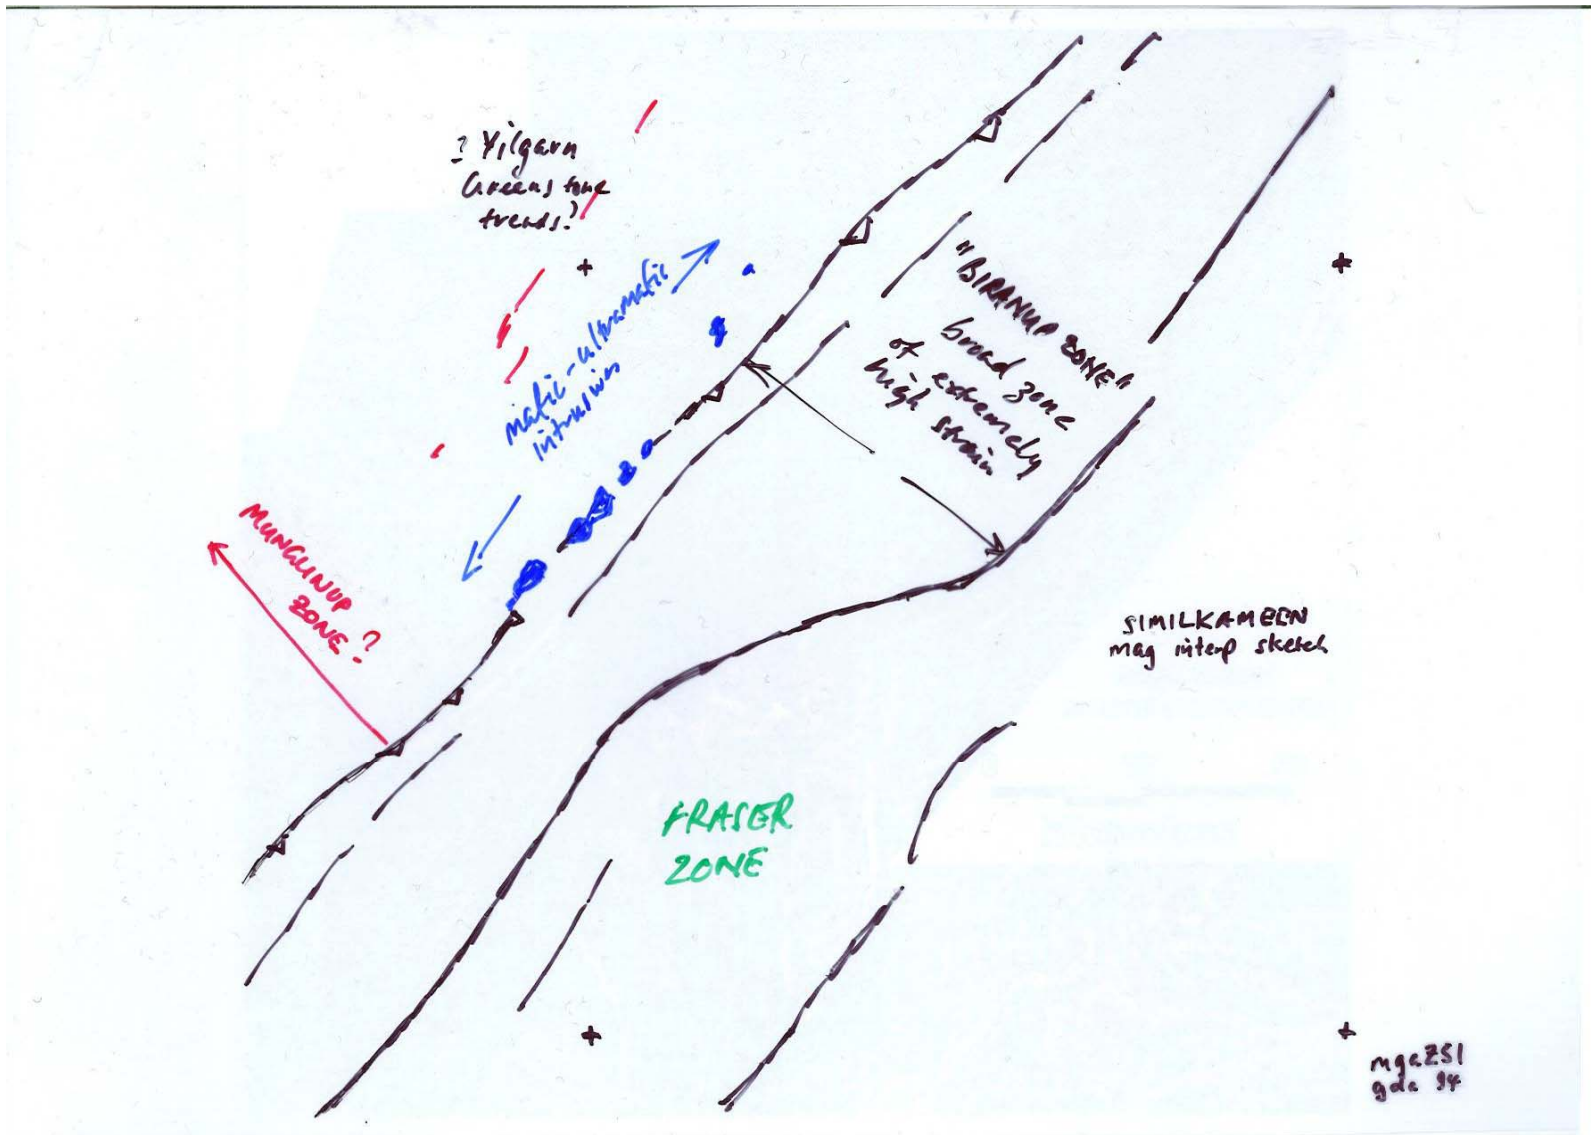 ? Yilgarn
Greenstone
trends?
mafic-ultramafic
intrusives
"BIRANUP ZONE"
broad zone
of extremely
high strain
MUNGLINUP
ZONE?
SIMILKAMEEN
mag interp sketch
FRASER
ZONE
mgaZ51
gda 94